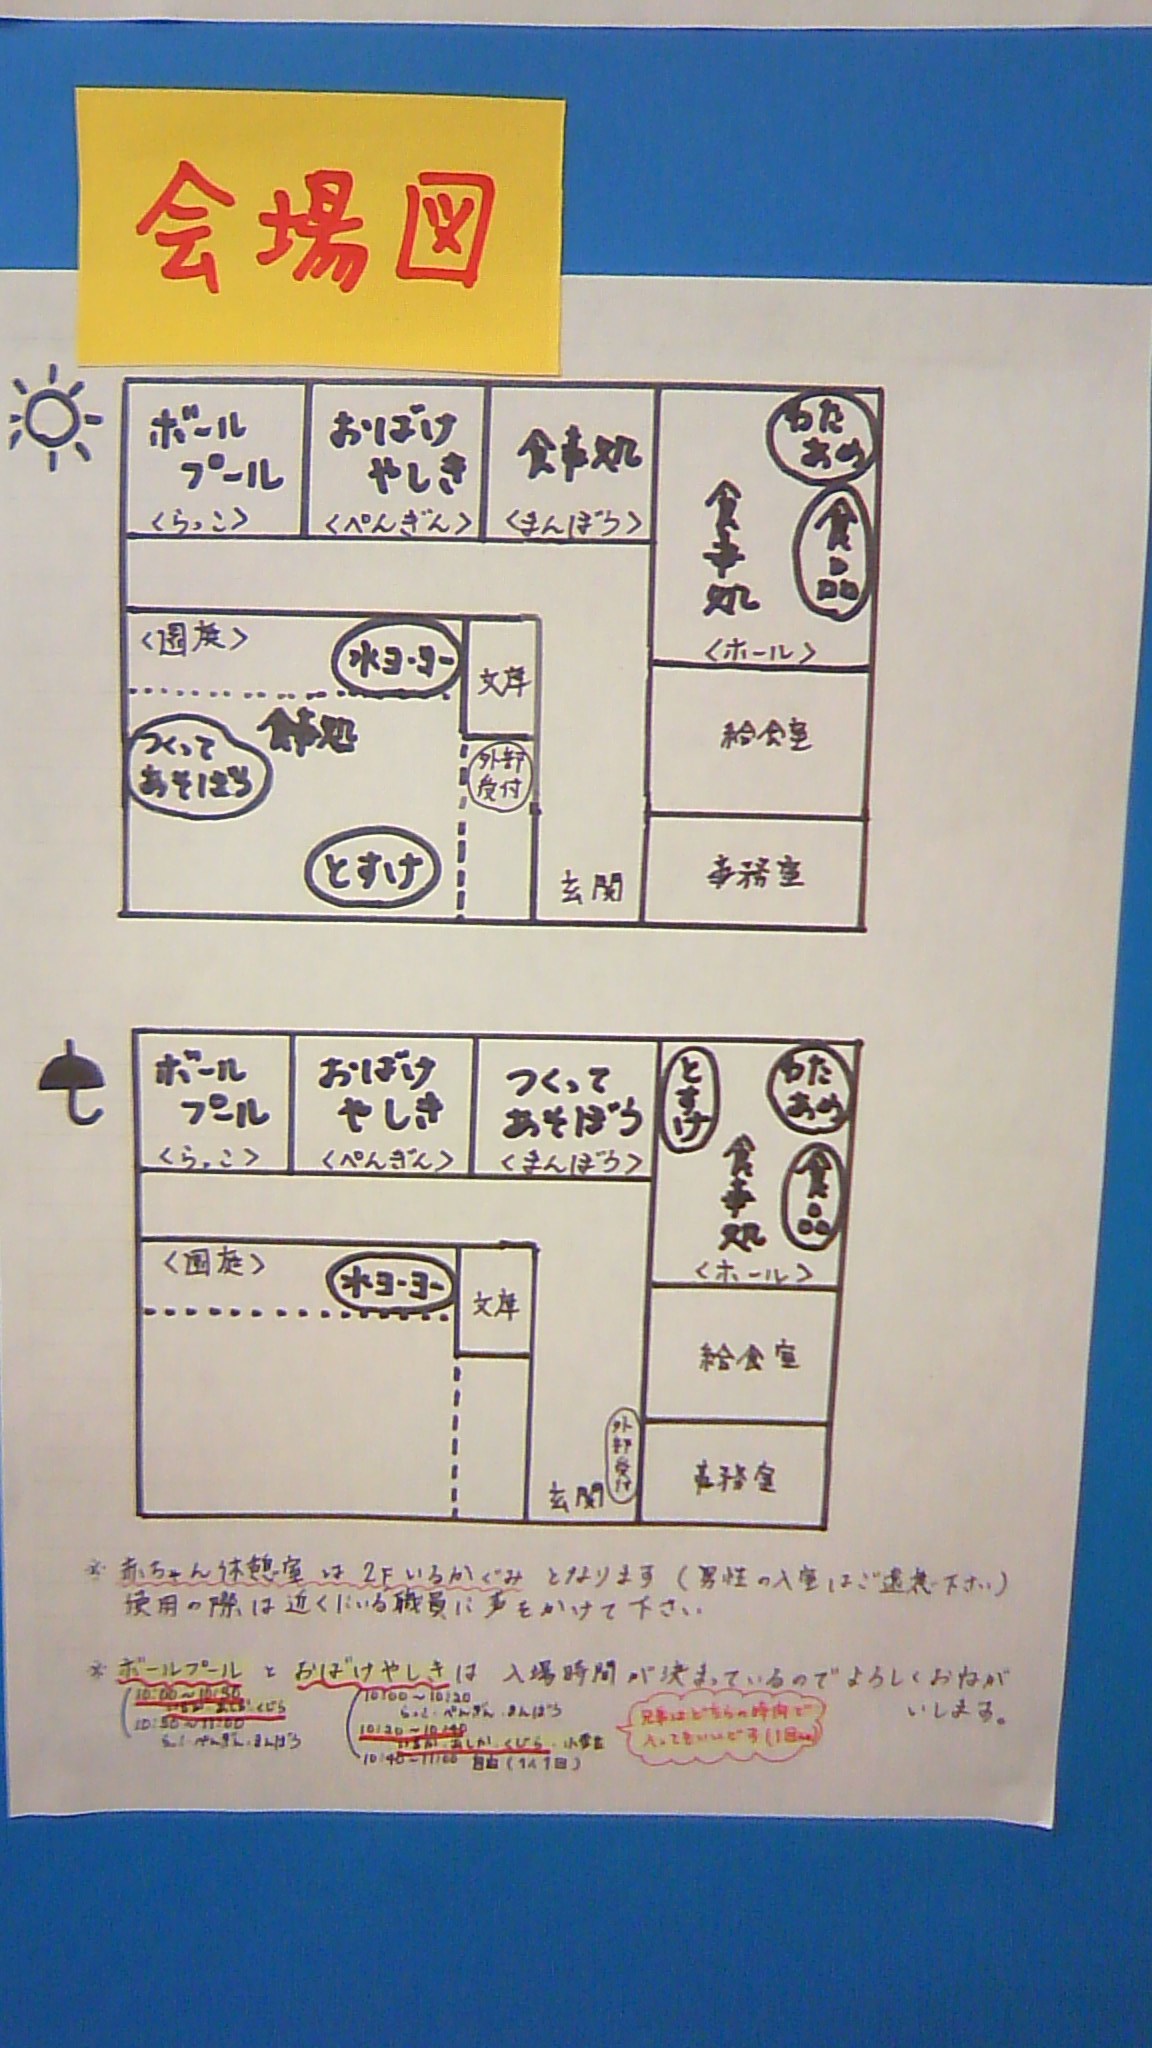 会場図
ボール
プール
<らっこ>
おばけ
やしき
<ぺんぎん>
食事処
<まんぼう>
わた
あめ
食品
食事処
<ホール>
<園庭>
水ヨーヨー
文庫
食事処
つくって
あそぼう
外部
受付
給食室
とすけ
玄関
事務室
ボール
プール
<らっこ>
おばけ
やしき
<ぺんぎん>
つくって
あそぼう
<まんぼう>
とすけ
わた
あめ
食品
食事処
<ホール>
<園庭>
水ヨーヨー
文庫
給食室
外部受付
玄関
事務室
※ 赤ちゃん休憩室は2Fいるかぐみとなります(男性の入室はご遠慮下さい)
使用の際は近くにいる職員に声をかけて下さい
※ ボールプールとおばけやしきは入場時間が決まっているのでよろしくおねが
いします。
10:00～10:30
いるか・あしか・くじら
10:30～11:00
らっこ・ぺんぎん・まんぼう
10:00～10:20
らっこ・ぺんぎん・まんぼう
10:20～10:40
いるか・あしか・くじら・小学生
10:40～11:00 自由(1人1回)
兄弟はどちらの時間で
入ってもいいです